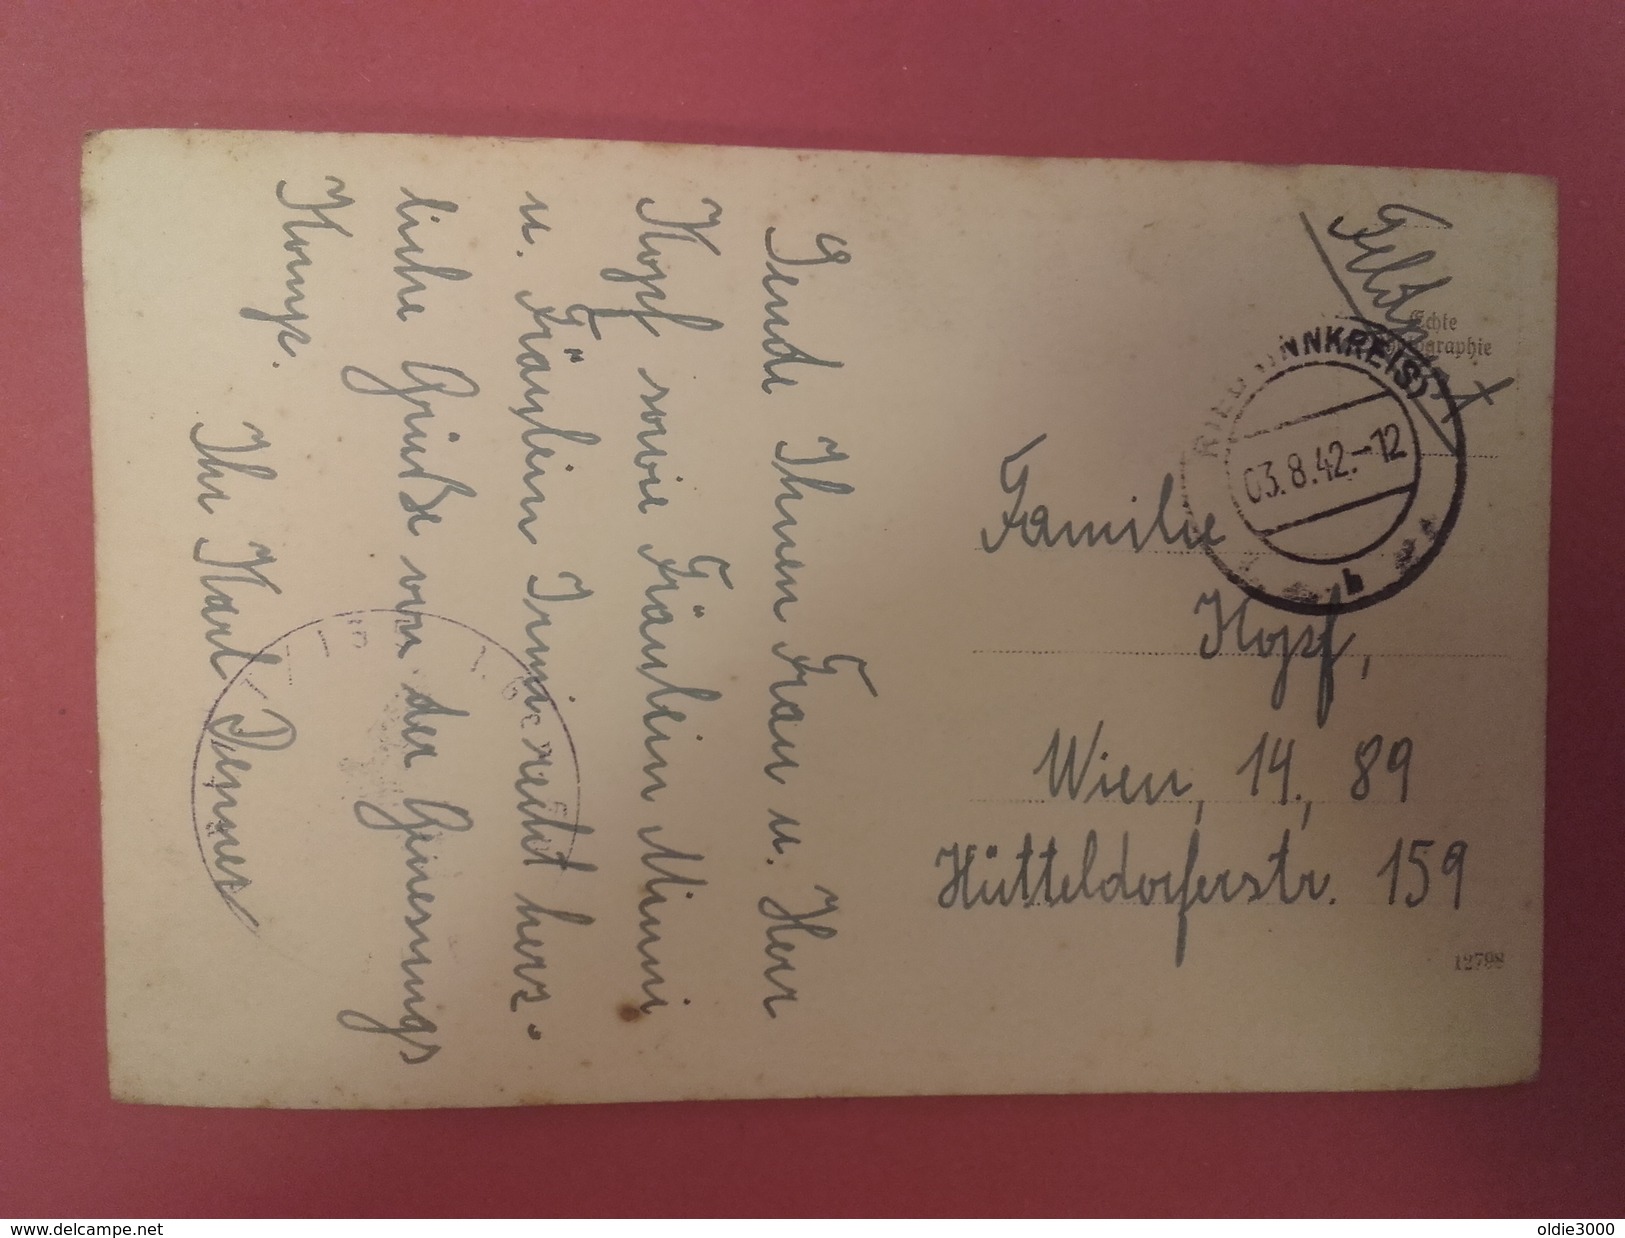 Sende Ihnen Frau u. Herr
Kopf sowie Fräulein Minni
u. Fräulein Irmi recht herz-
liche Grüße von der Genesungs
Komp.
Ihr Karl
Feldpost
Echte
RIED (INNKREIS)
03.8.42.-12
b
Familie
Kopf,
Wien, 14, 89
Hütteldorferstr. 159
12798
www.delcampe.net
oldie3000